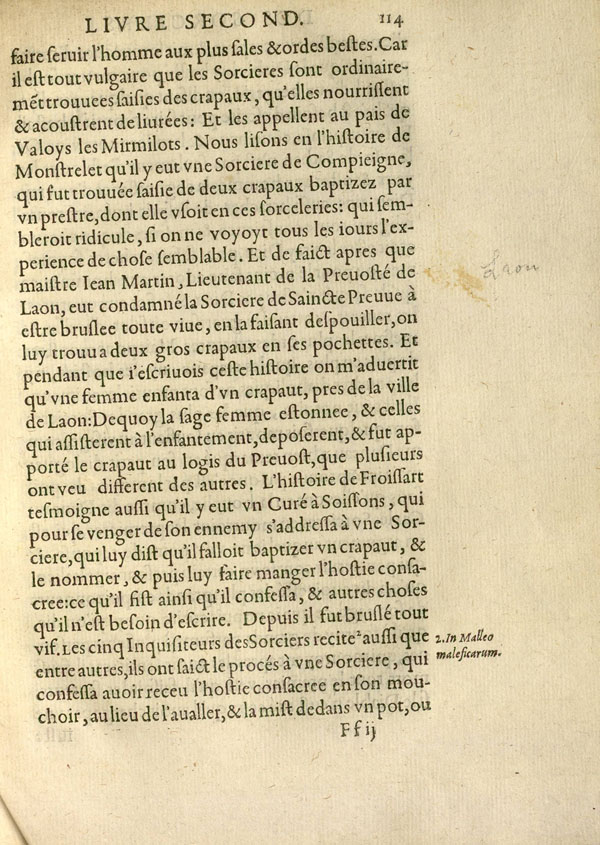 LIVRE SECOND. 114
faire ſeruir l'homme aux plus ſales & ordes beſtes. Car
il eſt tout vulgaire que les Sorcieres ſont ordinaire-
mẽt trouuees ſaiſies des crapaux, qu'elles nourriſſent
& acouſtrent de liurées: Et les appellent au pais de
Valoys les Mirmilots. Nous liſons en l'hiſtoire de
Monſtrelet qu'il y eut vne Sorciere de Compieigne,
qui fut trouuée ſaiſie de deux crapaux baptizez par
vn preſtre, dont elle vſoit en ces ſorceleries: qui ſem-
bleroit ridicule, ſi on ne voyoyt tous les iours l'ex-
perience de choſe ſemblable. Et de faict apres que
maiſtre Iean Martin, Lieutenant de la Preuoſté de
Laon, eut condamné la Sorciere de Saincte Preuue à
eſtre bruſlee toute viue, en la faiſant deſpouiller, on
luy trouua deux gros crapaux en ſes pochettes. Et
pendant que i'eſcriuois ceſte hiſtoire on m'aduertit
qu'vne femme enfanta d'vn crapaut, pres de la ville
de Laon: Dequoy la ſage femme eſtonnee, & celles
qui aſſiſterent à l'enfantement, depoſerent, & fut ap-
porté le crapaut au logis du Preuoſt, que pluſieurs
ont veu different des autres. L'hiſtoire de Froiſſart
teſmoigne auſſi qu'il y eut vn Curé à Soiſſons, qui
pour ſe venger de ſon ennemy s'addreſſa à vne Sor-
ciere, qui luy diſt qu'il falloit baptizer vn crapaut, &
le nommer, & puis luy faire manger l'hoſtie conſa-
cree: ce qu'il fiſt ainſi qu'il confeſſa, & autres choſes
qu'il n'eſt beſoin d'eſcrire. Depuis il fut bruſlé tout
vif. Les cinq Inquiſiteurs des Sorciers recite² auſſi que
entre autres, ils ont faict le procés à vne Sorciere, qui
confeſſa auoir receu l'hoſtie conſacree en ſon mou-
choir, au lieu de l'aualler, & la miſt dedans vn pot, ou
Ff ij
Laon
2. In Malleo
maleficarum.